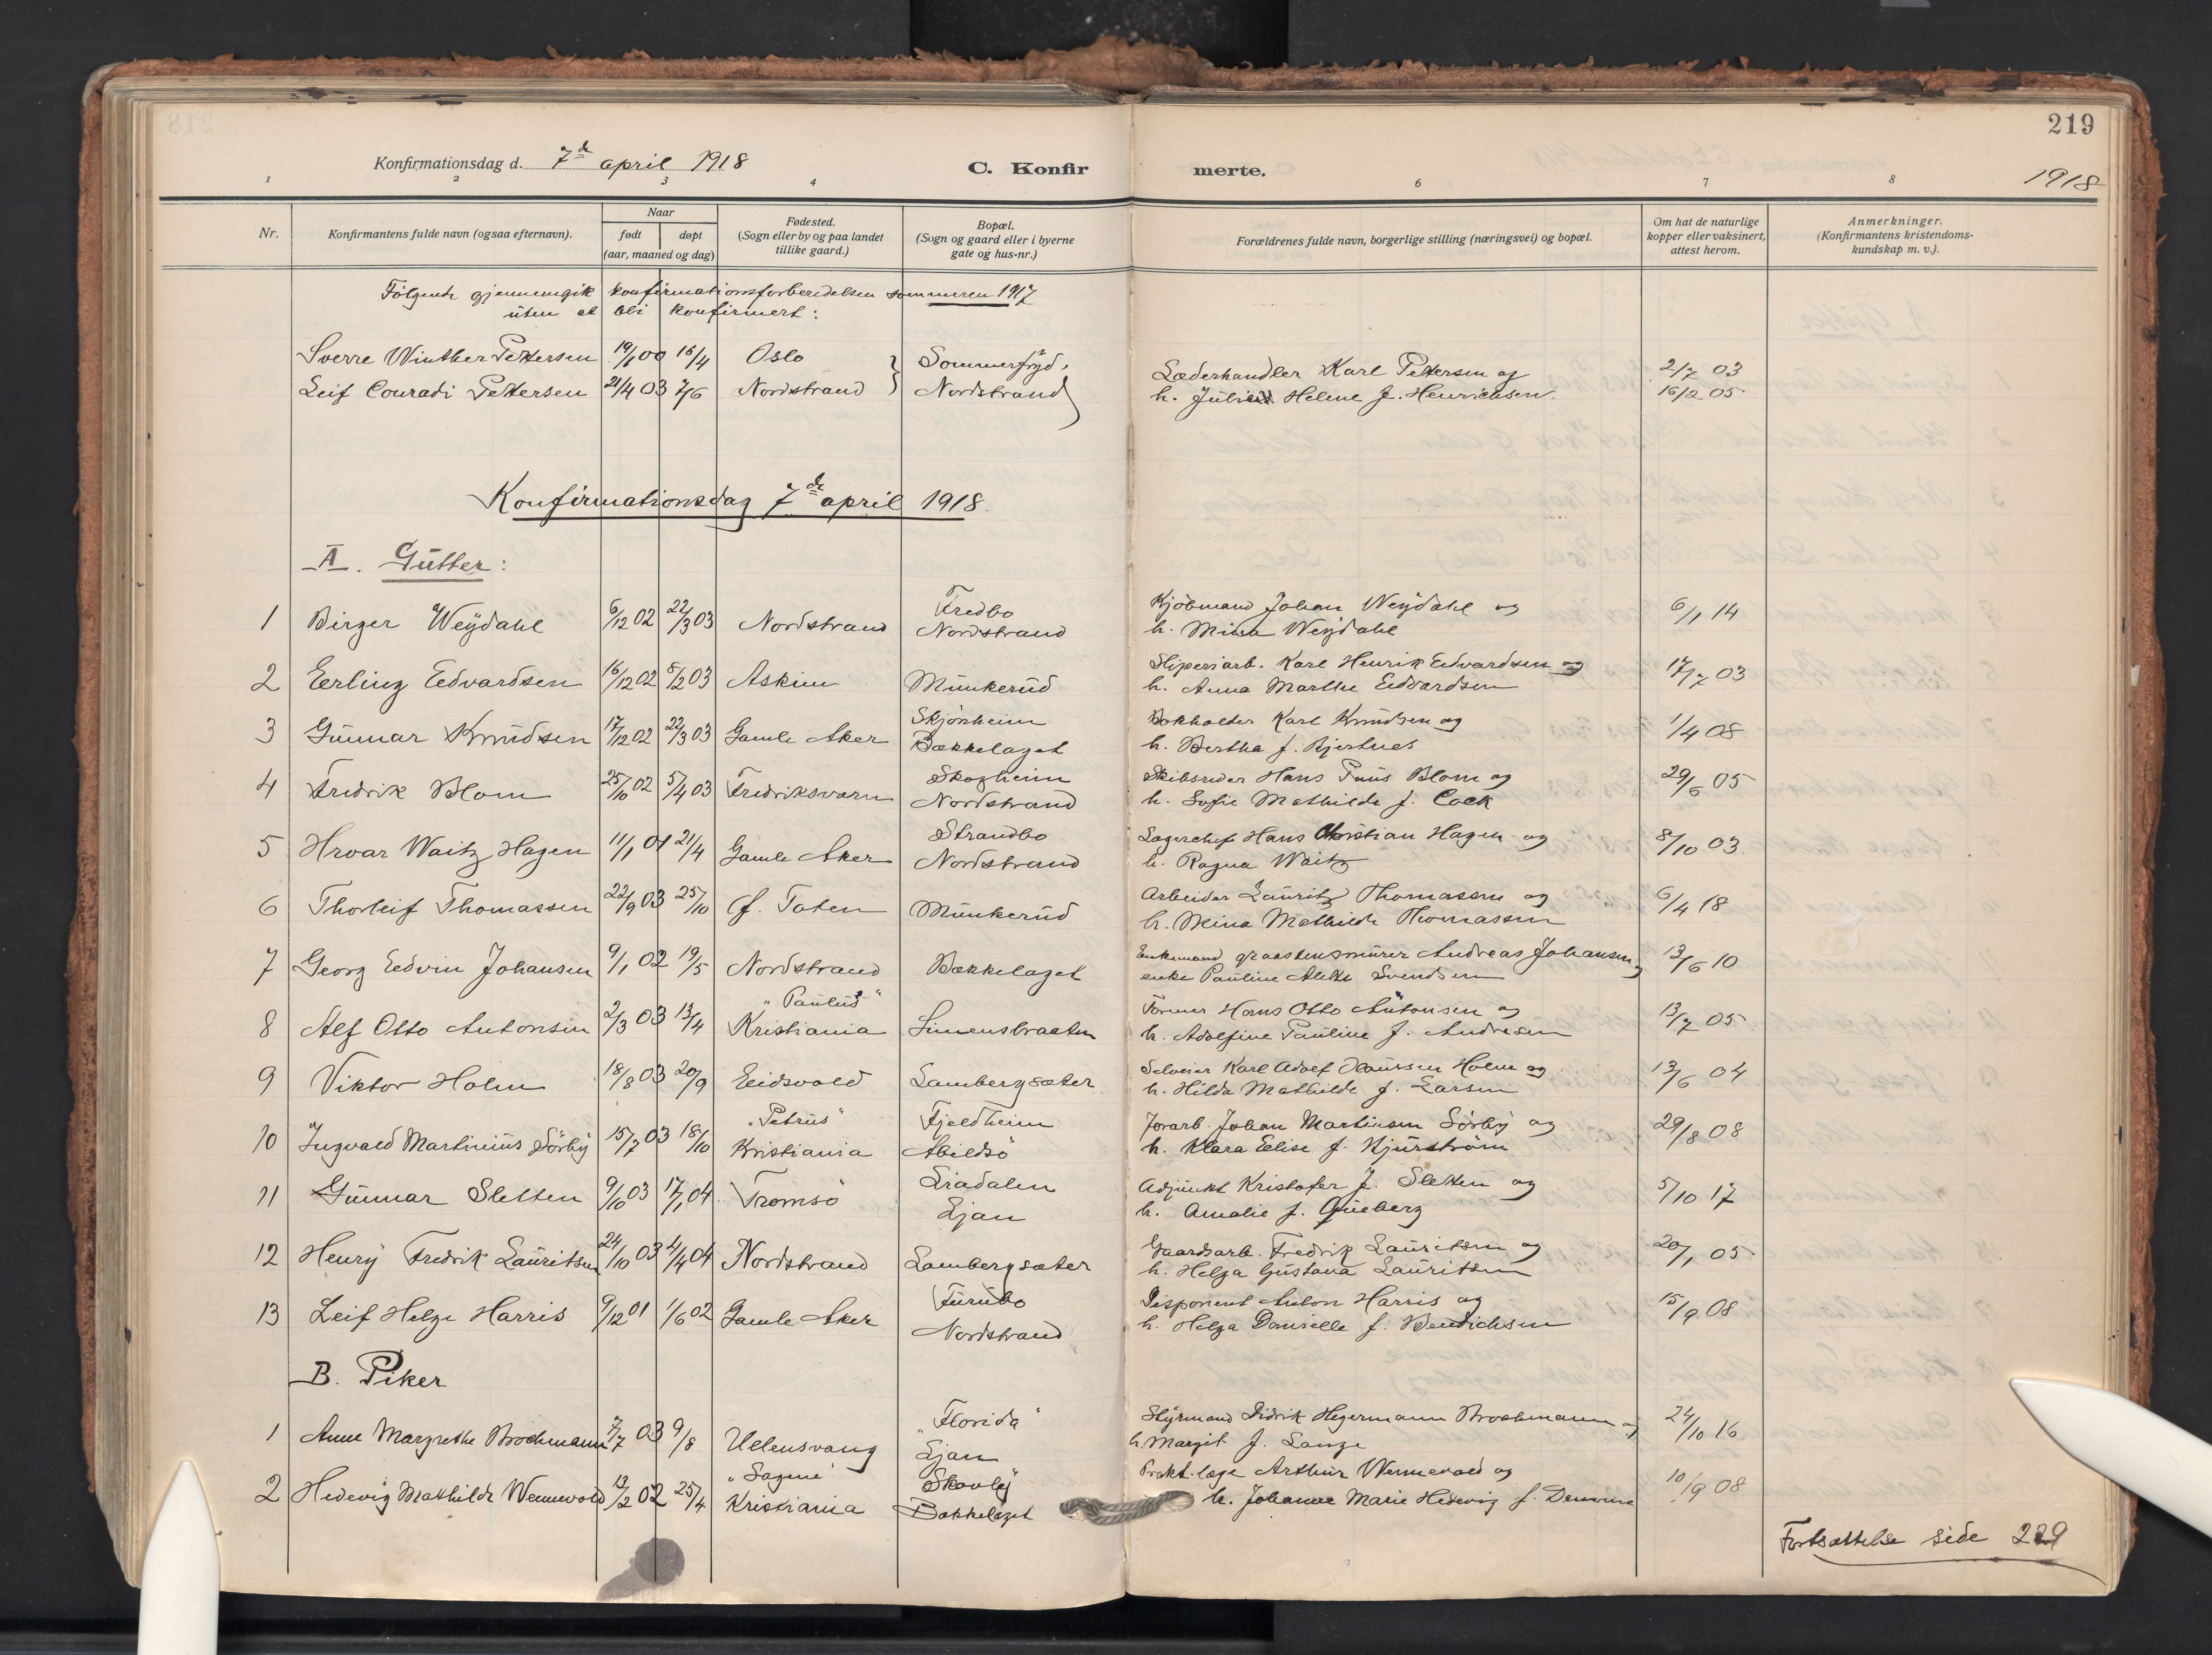 219
Konfirmationsdag d. 7de april 1918 C. Konfirmerte. 1918
1 2 3 4 6 7 8
Nr.
Konfirmantens fulde navn (ogsaa efternavn).
Naar
født døpt
(aar, maaned og dag)
Fødested.
(Sogn eller by og paa landet
tillike gaard.)
Bopæl.
(Sogn og gaard eller i byerne
gate og hus-nr.)
Forældrenes fulde navn, borgerlige stilling (næringsvei) og bopæl.
Om hat de naturlige
kopper eller vaksinert,
attest herom.
Anmerkninger.
(Konfirmantens kristendoms-
kundskap m. v.).
Følgende gjennemgik konfirmationsforberedelsen sommeren 1917
uten at bli konfirmert:
Sverre Winther Pettersen 19/1 00 16/4 Oslo Sommerfryd, Læderhandler Karl Pettersen og 2/7 03
Leif Conradi Pettersen 21/4 03 7/6 Nordstrand Nordstrand h. Julie Helene f. Henrichsen. 16/2 05
Konfirmationsdag 7de april 1918.
A. Gutter:
Fredbo Kjøbmand Johan Weydahl og
1 Birger Weydahl 6/12 02 22/3 03 Nordstrand Nordstrand h. Mina Weydahl 6/1 14
Sliperiarb. Karl Henrik Edvardsen og
2 Erling Edvardsen 16/12 02 8/2 03 Askim Munkerud h. Anna Marthe Edvardsen 17/7 03
Skjønheim Bokholder Karl Knudsen og
3 Gunnar Knudsen 17/12 02 22/3 03 Gamle Aker Bækkelaget h. Bertha f. Bjertnes 1/4 08
Skogheim Skibsreder Hans Paus Blom og
4 Fredrik Blom 25/10 02 5/4 03 Fredriksværn Nordstrand h. Sofie Mathilde f. Cock 29/6 05
Strandbo Lagerchef Hans Christian Hagen og
5 Hroar Waitz Hagen 11/1 01 21/4 Gamle Aker Nordstrand h. Ragna Waitz 8/10 03
Arbeider Lauritz Thomassen og
6 Thorleif Thomassen 22/9 03 25/10 Ø. Toten Munkerud h. Mina Mathilde Thomassen 6/4 18
Enkemand graastensmurer Andreas Johansen og
7 Georg Edvin Johansen 9/1 02 19/5 Nordstrand Bækkelaget enke Pauline Alette Svendsen 13/6 10
"Paulus" Former Hans Otto Antonsen og
8 Alf Otto Antonsen 2/3 03 13/4 Kristiania Simensbraaten h. Adolfine Pauline f. Andresen 13/7 05
Selveier Karl Adolf Olaussen Holm og
9 Viktor Holm 18/8 03 20/9 Eidsvold Lambergsæter h. Hilda Mathilde f. Larsen 13/6 04
"Petrus" Fjeldheim Jorarb. Johan Martinsen Sørby og
10 Ingvald Martinius Sørby 15/7 03 18/10 Kristiania Abildsø h. Klara Elise f. Kjurström 29/8 08
Liadalen Adjunkt Kristofer J. Sletten og
11 Gunnar Sletten 9/10 03 17/1 04 Tromsø Ljan h. Amalie f. Gueberg 5/10 17
Gaardsarb. Fredrik Lauritsen og
12 Henry Fredrik Lauritsen 24/10 03 4/4 04 Nordstrand Lambergsæter h. Helga Gustava Lauritsen 20/1 05
Furubo Disponent Anton Harris og
13 Leif Helge Harris 9/12 01 1/6 02 Gamle Aker Nordstrand h. Helga Danielle f. Bendichsen 15/9 08
B. Piker
"Florida" Styrmand Didrik Hegermann Brochmann og
1 Anne Margrethe Brochmann 7/7 03 9/8 Ullensvang Ljan h. Margit f. Lange 24/10 16
"Sagene" Skovly Prakt. læge Arthur Wennevold og
2 Hedevig Mathilde Wennevold 13/2 02 25/4 Kristiania Bækkelaget h. Johanne Marie Hedevig f. 10/9 08
Fortsættelse side 229